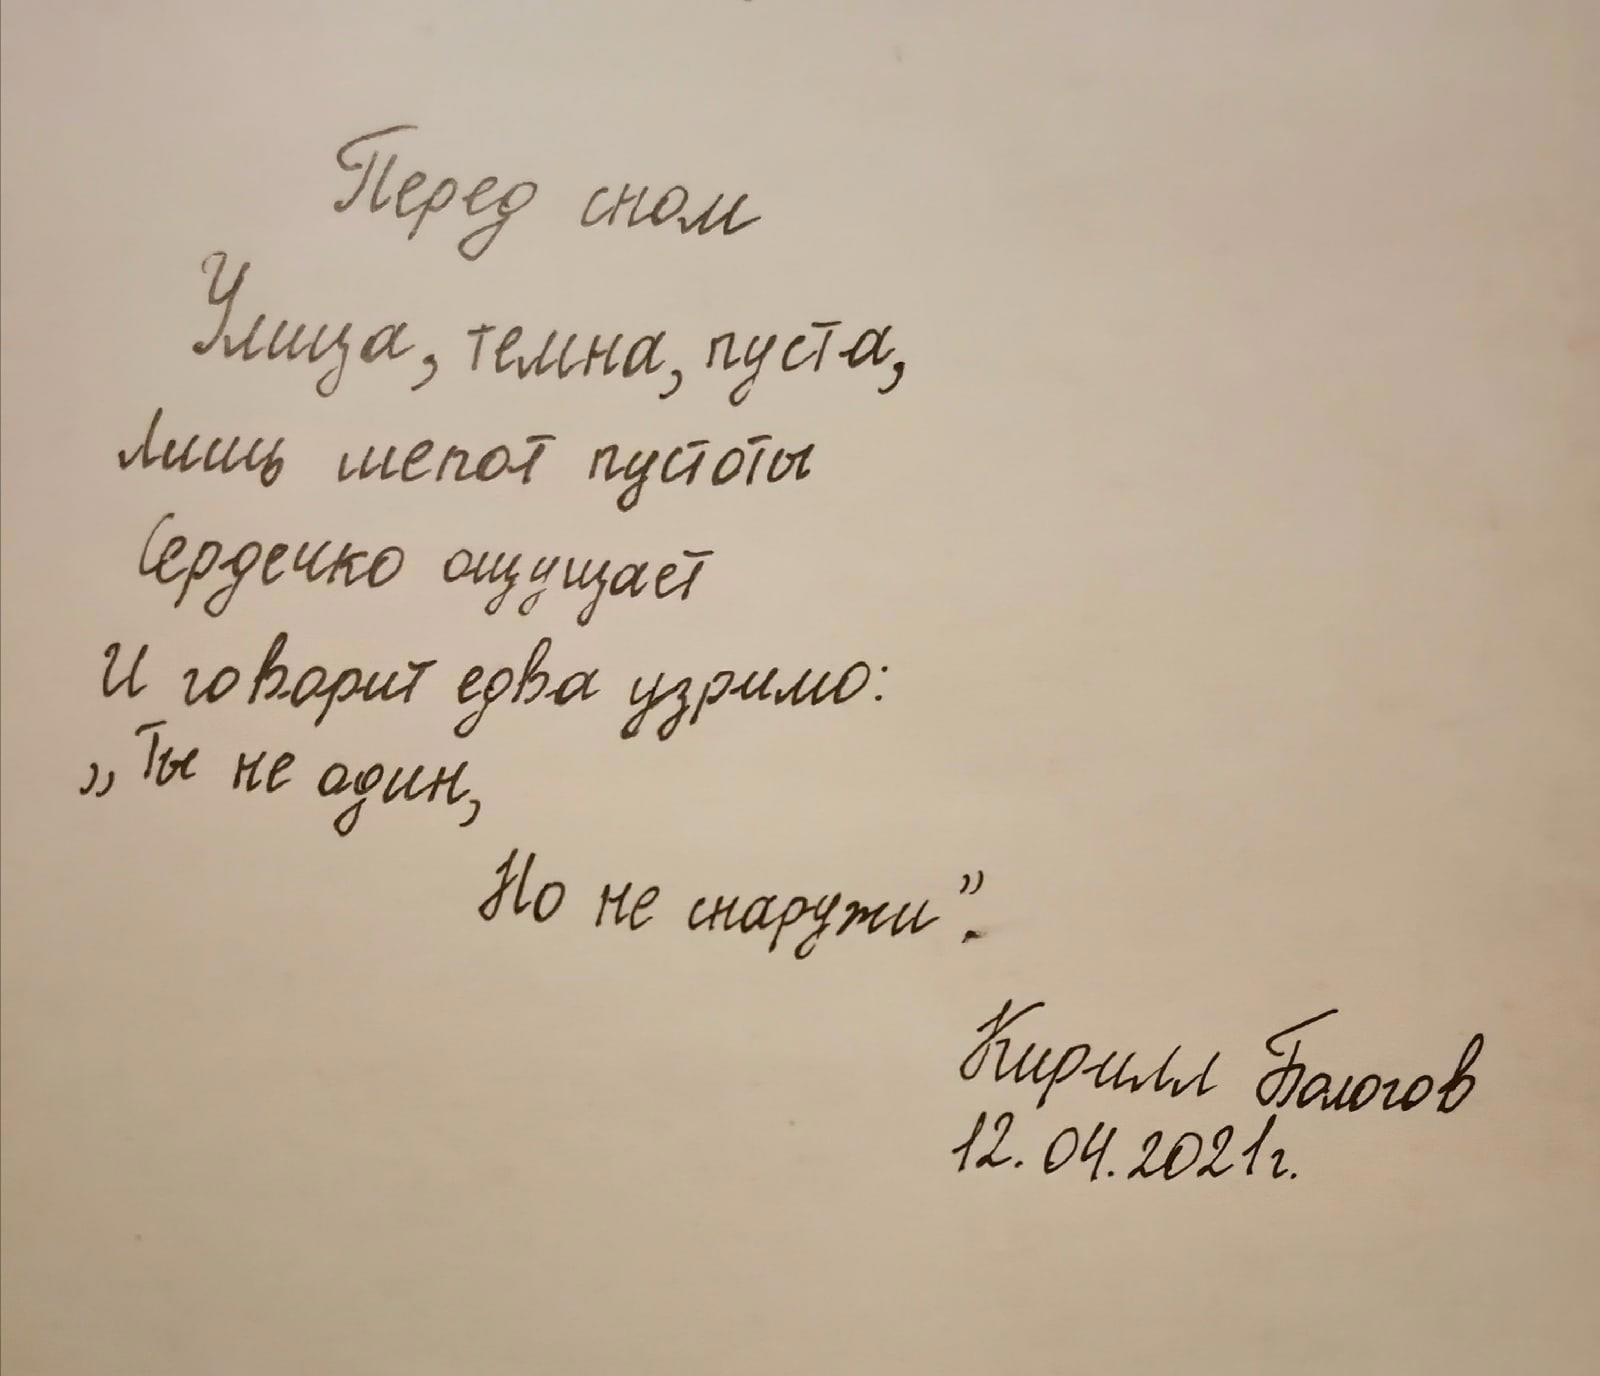 Перед сном
Улица, темна, пуста,
Лишь шепот пустоты
Сердечко ощущает
И говорит едва узримо:
„Ты не один,
Но не снаружи”.
Кирилл Бологов
12.04.2021г.